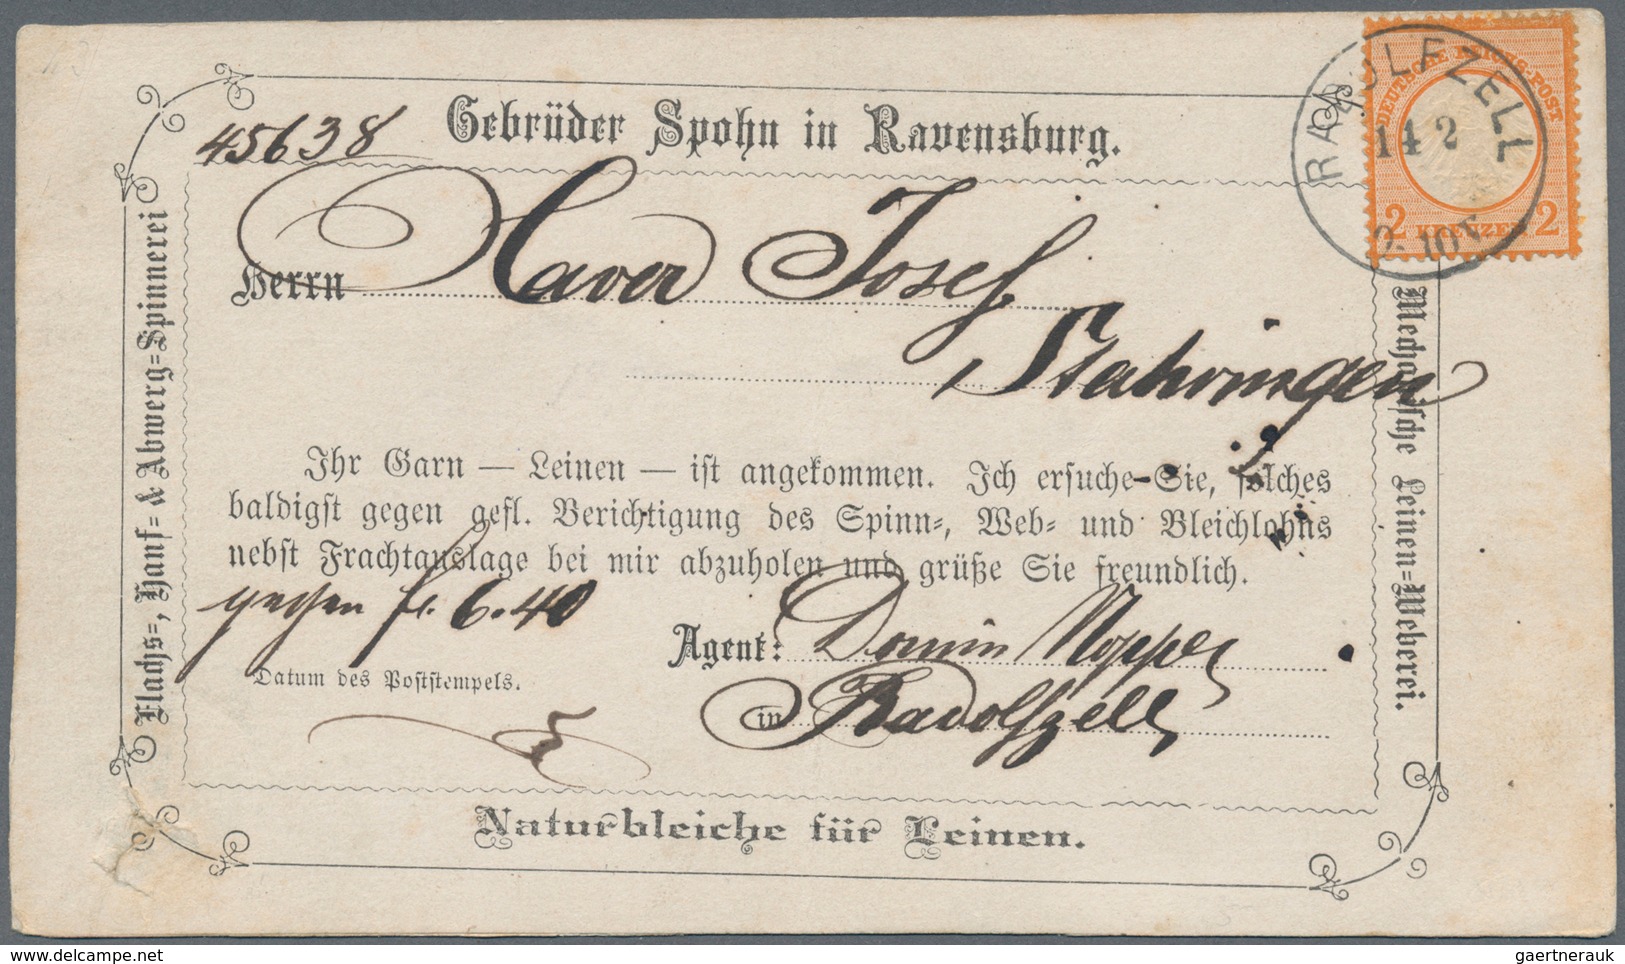 45638
Gebrüder Spohn in Ravensburg.
Herrn Xaver Josef
Stahringen
Ihr Garn — Leinen — ist angekommen. Ich ersuche Sie, solches
baldigst gegen gefl. Berichtigung des Spinn-, Web- und Bleichlohns
nebst Frachtauslage bei mir abzuholen und grüße Sie freundlich.
gegen fl. 6.40
Agent: Nopper
Datum des Poststempels.
in Radolfzell
Naturbleiche für Leinen.
Flachs-, Hanf- & Abwerg-Spinnerei
Mechanische Leinen-Weberei.
RADOLFZELL
14 2
DEUTSCHE REICHS-POST
2 KREUZER 2
delcampe.net
gaertnerauk